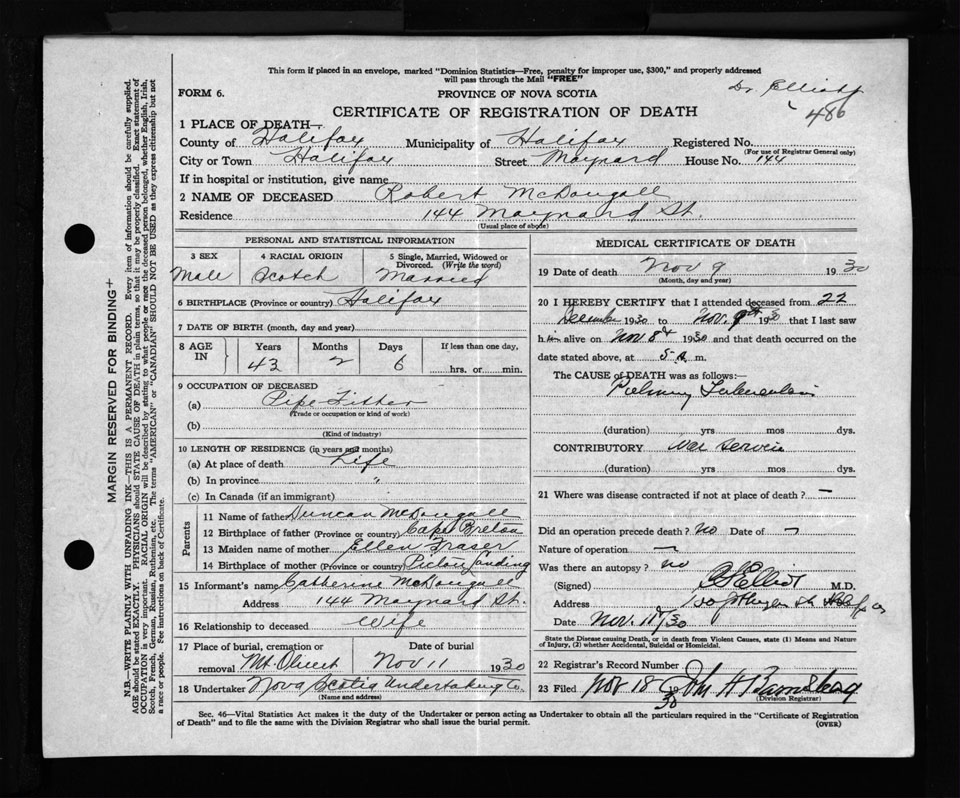 This form if placed in an envelope, marked "Dominion Statistics—Free, penalty for improper use, $300," and properly addressed
will pass through the Mail "FREE"
Dr. Elliott
FORM 6.
PROVINCE OF NOVA SCOTIA
486
CERTIFICATE OF REGISTRATION OF DEATH
1 PLACE OF DEATH—
County of Halifax Municipality of Halifax Registered No.
(For use of Registrar General only)
City or Town Halifax Street Maynard House No. 144
If in hospital or institution, give name
2 NAME OF DECEASED Robert McDougall
Residence 144 Maynard St.
(Usual place of abode)
PERSONAL AND STATISTICAL INFORMATION
3 SEX 4 RACIAL ORIGIN 5 Single, Married, Widowed or
Divorced. (Write the word)
Male Scotch Married
6 BIRTHPLACE (Province or country) Halifax
7 DATE OF BIRTH (month, day and year)
8 AGE IN Years Months Days If less than one day,
43 2 6 hrs. or min.
9 OCCUPATION OF DECEASED
(a) Pipe Fitter
(Trade or occupation or kind of work)
(b)
(Kind of industry)
10 LENGTH OF RESIDENCE (in years and months)
(a) At place of death Life
(b) In province "
(c) In Canada (if an immigrant)
Parents
11 Name of father Duncan McDougall
12 Birthplace of father (Province or country) Cape Breton
13 Maiden name of mother Ellen Fraser
14 Birthplace of mother (Province or country) Pictou Landing
15 Informant's name Catherine McDougall
Address 144 Maynard St.
16 Relationship to deceased Wife
17 Place of burial, cremation or Date of burial
removal Mt. Olivet Nov 11 1930
18 Undertaker Nova Scotia Undertaking Co
(Name and address)
MEDICAL CERTIFICATE OF DEATH
19 Date of death Nov 9 1930
(Month, day and year)
20 I HEREBY CERTIFY that I attended deceased from 22
December 1930 to Nov. 9th 1930 that I last saw
him alive on Nov. 8th 1930 and that death occurred on the
date stated above, at 5 a. m.
The CAUSE of DEATH was as follows:—
Pulmonary Tuberculosis
(duration) yrs mos dys.
CONTRIBUTORY War Service
(duration) yrs mos dys.
21 Where was disease contracted if not at place of death? —
Did an operation precede death? no Date of —
Nature of operation —
Was there an autopsy? no
(Signed) Elliott M.D.
Address
Date Nov. 11/30
State the Disease causing Death, or in death from Violent Causes, state (1) Means and Nature
of Injury, (2) whether Accidental, Suicidal or Homicidal.
22 Registrar's Record Number
23 Filed Nov 18 30 John H
(Division Registrar)
Sec. 46—Vital Statistics Act makes it the duty of the Undertaker or person acting as Undertaker to obtain all the particulars required in the "Certificate of Registration
of Death" and to file the same with the Division Registrar who shall issue the burial permit.
(OVER)
MARGIN RESERVED FOR BINDING+
N.B.—WRITE PLAINLY WITH UNFADING INK—THIS IS A PERMANENT RECORD. Every item of information should be carefully supplied.
AGE should be stated EXACTLY. PHYSICIANS should STATE CAUSE OF DEATH in plain terms, so that it may be properly classified. Exact statement of
OCCUPATION is very important. RACIAL ORIGIN will be described by stating to what people or race the deceased person belonged, whether English, Irish,
Scotch, French, German, Russian, Ruthenian, etc. The terms "AMERICAN" or "CANADIAN" SHOULD NOT BE USED as they express citizenship but not
a race or people. See instructions on back of Certificate.